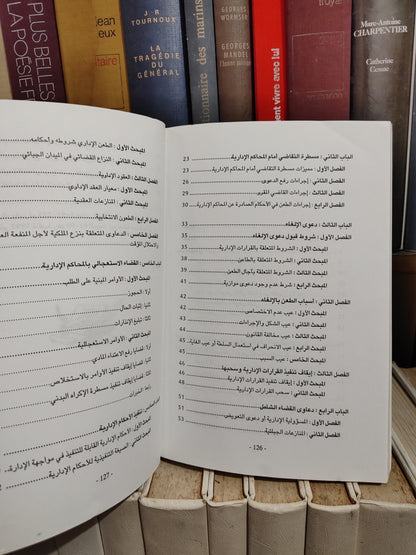 PLUS BELLES
LA POÉSIE
Jean
J - R
TOURNOUX
LA
TRAGÉDIE
DU
GÉNÉRAL
des marins
GEORGES
WORMSER
GEORGES
MANDEL
vivre avec lui
Marc-Antoine
CHARPENTIER
Catherine
Cessac
الباب الثاني : مسطرة التقاضي أمام المحاكم الإدارية 23
الفصل الأول : مميزات مسطرة التقاضي أمام المحاكم الإدارية 23
الفصل الثاني : إجراءات رفع الدعوى
الفصل الثالث : إجراءات القاضي المقرر
الفصل الرابع : إجراءات الطعن في الأحكام الصادرة عن المحاكم الإدارية 30
الباب الثالث : دعوى الإلغاء 33
الفصل الأول : شروط قبول دعوى الإلغاء
المبحث الأول : الشروط المتعلقة بالقرارات الإدارية
المبحث الثاني : الشروط المتعلقة بالطاعن
المبحث الثالث : الشروط المتعلقة بآجال الطعن
المبحث الرابع : شرط عدم وجود دعوى موازية
الفصل الثاني : أسباب الطعن بالإلغاء 42
المبحث الأول : عيب عدم الاختصاص
المبحث الثاني : عيب الشكل والإجراءات
المبحث الثالث : عيب مخالفة القانون
المبحث الرابع : عيب الانحراف في استعمال السلطة أو عيب الغاية
المبحث الخامس : عيب السبب
الفصل الثالث : إيقاف تنفيذ القرارات الإدارية وسحبها 46
المبحث الأول : إيقاف تنفيذ القرارات الإدارية
المبحث الثاني : سحب القرارات الإدارية
الباب الرابع : دعاوى القضاء الشامل 51
الفصل الأول : المسؤولية الإدارية أو دعوى التعويض
الفصل الثاني : المنازعات الجبائية
- 126 -
المبحث الأول : الطعن الإداري شروطه وأحكامه
المبحث الثاني : النزاع القضائي في الميدان الجبائي
الفصل الثالث : العقود الإدارية
المبحث الأول : معيار العقد الإداري
المبحث الثاني : المنازعات العقدية
الفصل الرابع : الطعون الانتخابية
الفصل الخامس : الدعاوى المتعلقة بنزع الملكية لأجل المنفعة العامة
والاحتلال المؤقت
الباب الخامس : القضاء الاستعجالي بالمحاكم الإدارية
المبحث الأول : الأوامر المبنية على الطلب
أولا: الحجوز
ثانيا: إثبات الحال
ثالثا: تبليغ الإنذارات
المبحث الثاني : الأوامر الاستعجالية
أولا: قضايا رفع الاعتداء المادي
ثانيا: قضايا إيقاف تنفيذ الأوامر بالاستخلاص
ثالثا: قضايا إيقاف تنفيذ مسطرة الإكراه البدني
رابعا: الخبرات
الباب السادس : تنفيذ الأحكام الإدارية
المبحث الأول : الأحكام الإدارية القابلة للتنفيذ في مواجهة الإدارة
المبحث الثاني : الصيغة التنفيذية للأحكام الإدارية
- 127 -